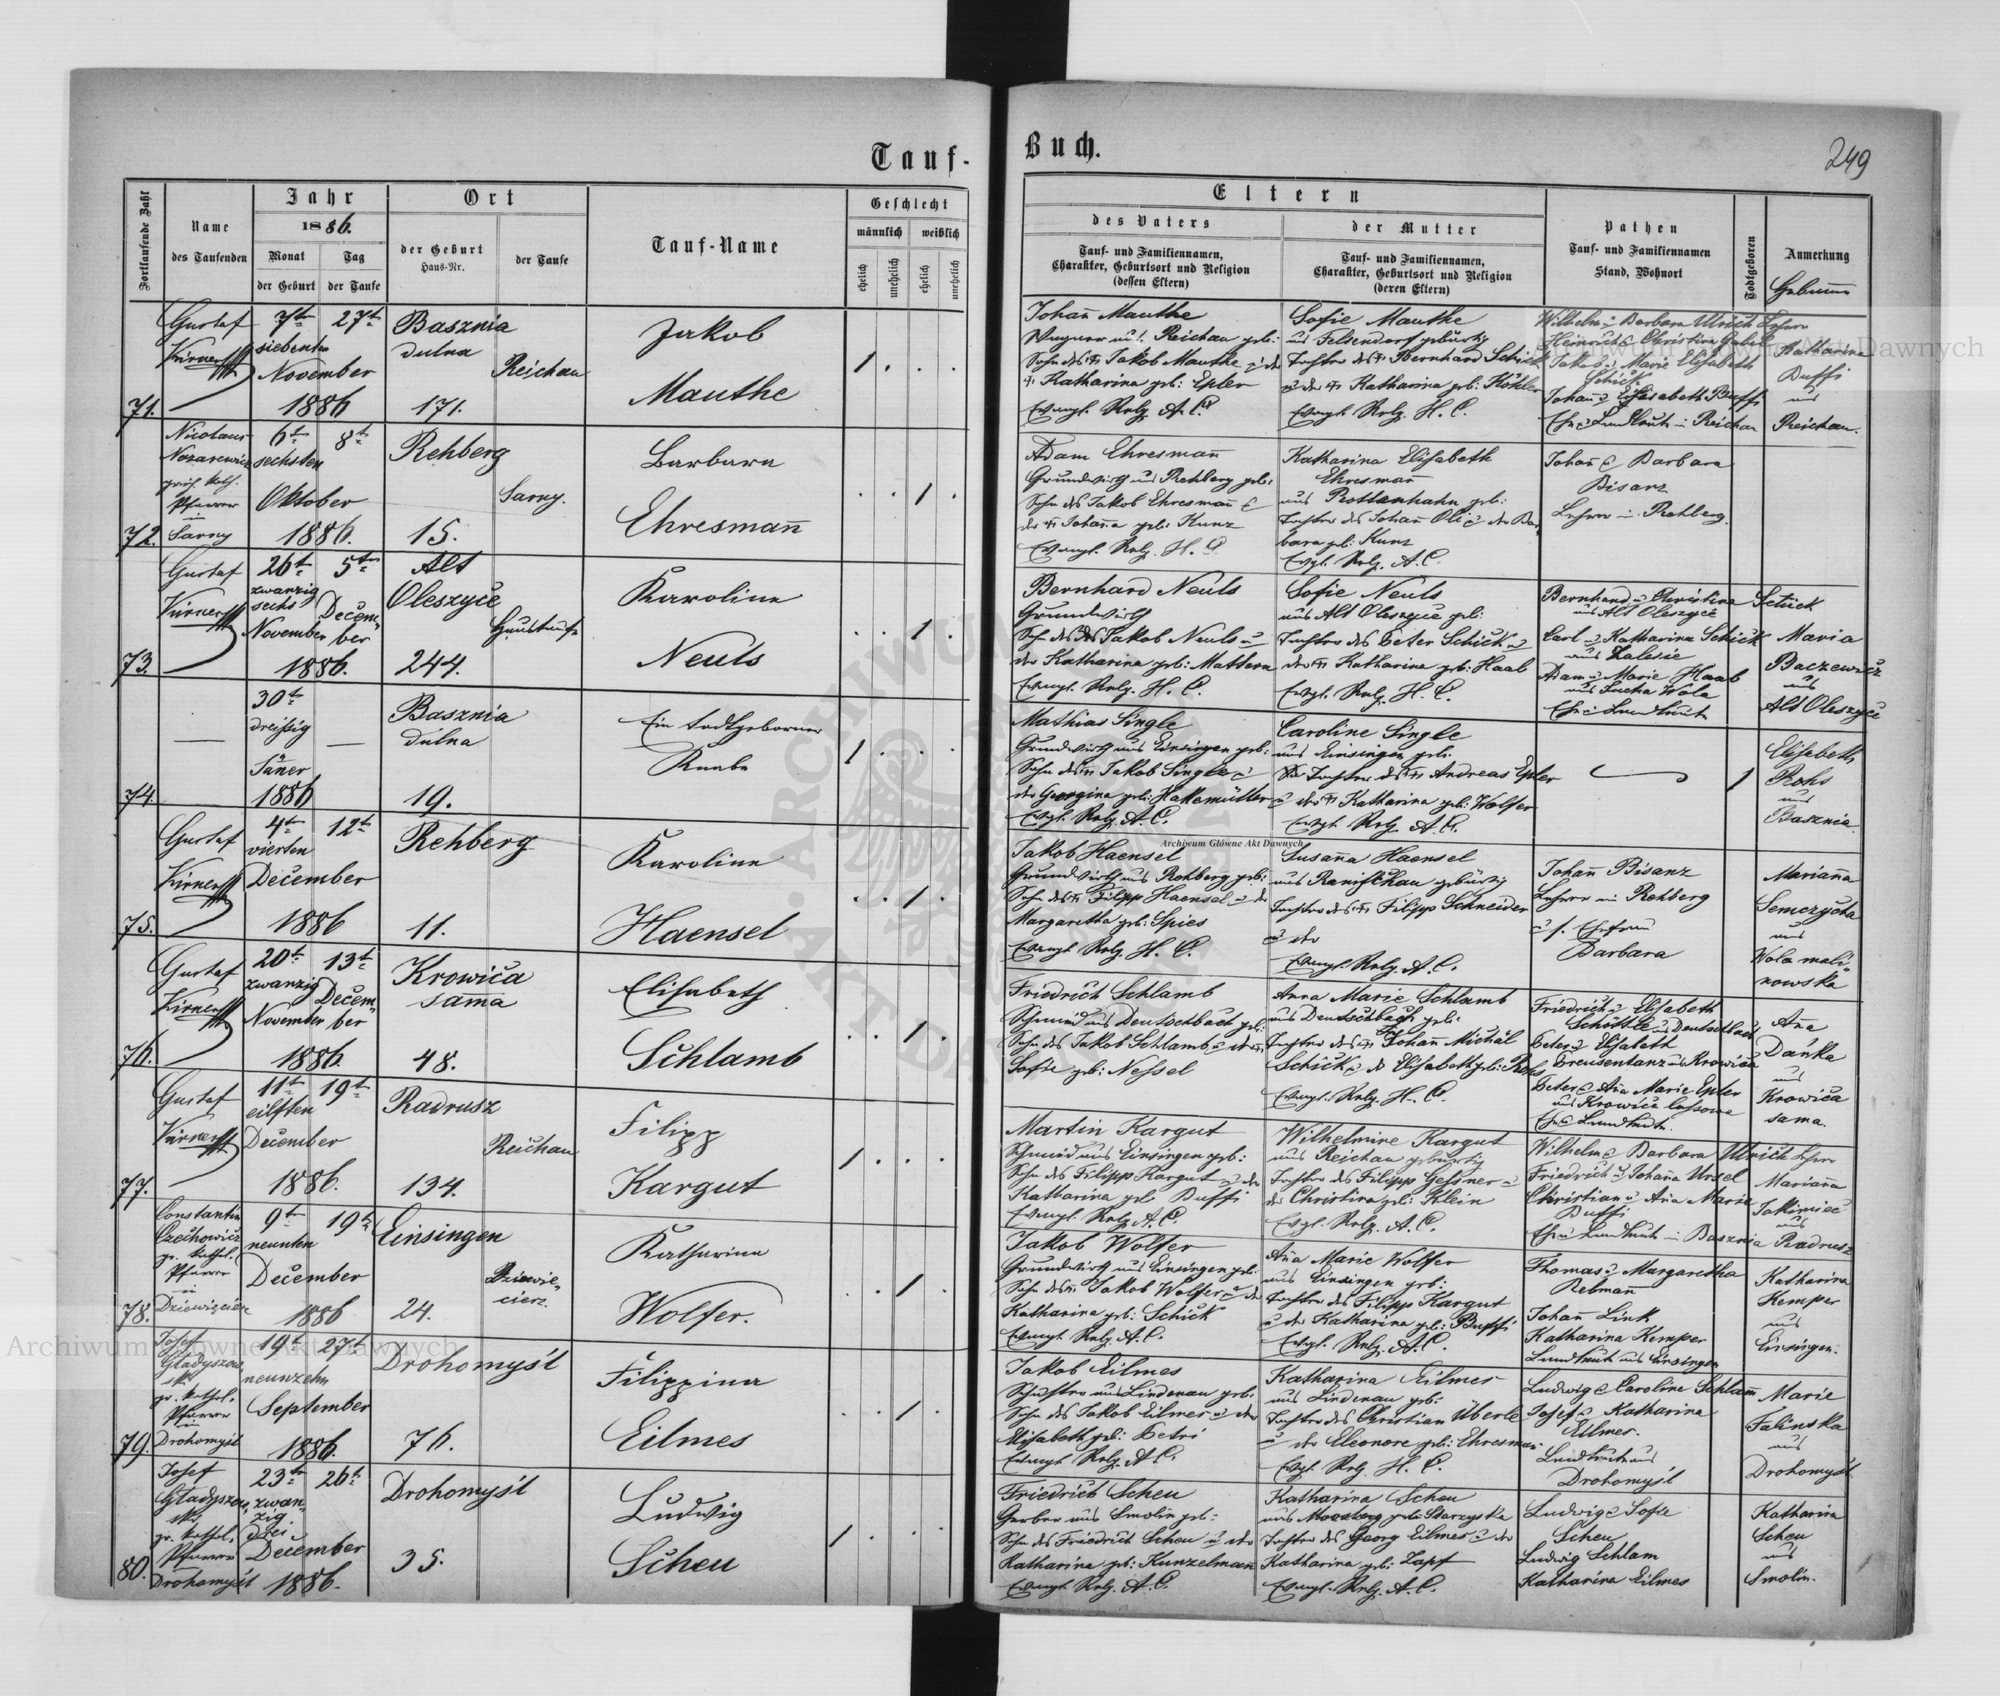 Tauf-
Buch.
249
Fortlaufende Zahl
Name
des Taufenden
Jahr
1886.
Monat
der Geburt
Tag
der Taufe
Ort
der Geburt
Haus-Nr.
der Taufe
Tauf-Name
Geschlecht
männlich
weiblich
ehelich
unehelich
ehelich
unehelich
Eltern
des Vaters
Tauf- und Familiennamen,
Charakter, Geburtsort und Religion
(dessen Eltern)
der Mutter
Tauf- und Familiennamen,
Charakter, Geburtsort und Religion
(deren Eltern)
Pathen
Tauf- und Familiennamen
Stand, Wohnort
Todtgeboren
Anmerkung
71.
Gustaf
7te 27te
siebenten
November
1886
Basznia
dulna
Reichau
171.
Jakob
Mauthe
1
Johañ Mauthe
Wagner aus Reichau geb:
Sohn des Jakob Mauthe u der
Katharina geb: Epler
Evangl. Relg. A. C.
Sofie Mauthe
aus Felsendorf gebürtig
Tochter des Bernhard Schick
u der Katharina geb: Köhler
Evangl. Relg. H. C.
Wilhelm u Barbara Ulrich Lehrer
Heinrich u Christina
Jakob u Marie Elisabeth
Schick
Johañ u Elisabeth Buffi
Reichau
Katharina
Buffi
aus
Reichau.
72.
Nicolaus
Nazarewicz
Pfarrer
in
Sarny
6te 8te
sechsten
Oktober
1886.
Rehberg
Sarny.
15.
Barbara
Ehresmañ
1
Adam Ehresmañ
Grundwirth aus Rehberg geb:
Sohn des Jakob Ehresmañ u
der Johaña geb: Kunz
Evangl. Relg. H. C
Katharina Elisabeth
Ehresmañ
aus Rottenhahn geb:
Tochter des Johañ Oli u der Bar
bara geb: Kunz
Evgl. Relg. A. C.
Johañ u Barbara
Bisanz
Lehrer in Rehberg.
73.
Gustaf
26te 5te
zwanzig
sechs
November
Decem
ber
1886.
Alt
Oleszyce
Haustaufe
244.
Karoline
Neuls
1
Bernhard Neuls
Grundwirth
Sohn des Jakob Neuls u
der Katharina geb: Mattern
Evangl. Relg. H. C.
Sofie Neuls
aus Alt Oleszyce geb:
Tochter des Peter Schick u
der Katharina geb: Haab
Evgl. Relg. H. C.
Bernhard u Christina Schick
aus Alt Oleszyce
Carl u Katharina Schick
aus Zalesie
Adam u Marie Haab
aus Sucha Wola
Maria
Baczewicz
aus
Alt Oleszyce
74.
30te
dreißig
Jäner
1886
Basznia
dulna
19.
Ein todtgeborner
Knabe
1
Mathias Single
Grundwirth aus Einsingen geb:
Sohn des Jakob Single u
der Georgina geb: Hakemüller
Evgl. Relg. A. C.
Caroline Single
aus Einsingen geb:
Tochter des Andreas Epler
u der Katharina geb: Wolfer
Evgl. Relg. A. C.
1
Elisabeth
Rohs
aus
Basznia.
75.
Gustaf
4te 12te
vierten
December
1886
Rehberg
11.
Karoline
Haensel
1
Jakob Haensel
Grundwirth aus Rehberg geb:
Sohn des Filipp Haensel u der
Margaretha geb: Spies
Evangl. Relg. H. C.
Susaña Haensel
aus Ranischau gebürtig
Tochter des Filipp Schneider
u der
Evangl. Relg. A. C.
Johañ Bisanz
Lehrer in Rehberg
u s. Ehefrau
Barbara
Mariaña
Semczycha
aus
Wola mali
nowska
76.
Gustaf
20te 13te
zwanzig
November
Decem
ber
1886.
Krowica
sama
48.
Elisabeth
Schlamb
1
Friedrich Schlamb
Schmied aus Deutschbach geb:
Sohn des Jakob Schlamb u der
Sofie geb: Nessel
Anna Marie Schlamb
aus Deutschbach geb:
Tochter des Johañ Michäl
Schick u d. Elisabeth geb: Rohs
Evangl. Relg. H. C.
Friedrich u Elisabeth
Schöttle aus Deutschbach
Peter u Elisabeth
Freusentanz aus Krowica
Peter u Aña Marie Epler
aus Krowica
Aña
Danka
aus
Krowica
sama.
77.
Gustaf
11te 19te
eilften
December
1886.
Radrusz
Reichau
134.
Filipp
Kargut
1
Martin Kargut
Schmied aus Einsingen geb:
Sohn des Filipp Kargut u der
Katharina geb Buffi
Evangl. Relg. A. C.
Wilhelmine Kargut
aus Reichau gebürtig
Tochter des Filipp Gessner u
der Christina geb: Klein
Evgl. Relg. A. C.
Wilhelm u Barbara Ulrich Lehrer
Friedrich u Johaña Ursel
Christian u Aña Maria
Buffi
Basznia
Mariaña
Jakimiec
aus
Radrusz
78.
Constantin
Czechowicz
gr. kathol.
Pfarrer
in
Dziewięcierz
9te 19te
neunten
December
1886
Einsingen
Dziewie
cierz.
24.
Katharina
Wolfer.
1
Jakob Wolfer
Grundwirth aus Einsingen geb:
Sohn des Jakob Wolfer u der
Katharina geb: Schick
Evangl. Relg. A. C.
Aña Marie Wolfer
aus Einsingen geb:
Tochter des Filipp Kargut
u der Katharina geb: Buffi
Evangl. Relg. A. C.
Thomas u Margaretha
Rebmañ
Johañ Link
Katharina Kemper
Landleute aus Einsingen
Katharina
Kemper
aus
Einsingen.
79.
Josef
Gładyszow
ski
gr. kathol.
Pfarrer
in
Drohomyśl
19te 27te
neunzehn
September
1886.
Drohomyśl
76.
Filippina
Eilmes
1
Jakob Eilmes
Schuster aus Lindenau geb:
Sohn des Jakob Eilmes u der
Elisabeth geb: Petri
Evangl. Relg. A. C.
Katharina Eilmes
aus Lindenau geb:
Tochter des Christian Überle
u der Eleonore geb: Ehresmañ
Evgl. Relg. H. C.
Ludwig u Caroline Schlam
Josef u Katharina
Eilmes.
Landleute aus
Drohomyśl
Marie
Falinska
aus
Drohomyśl
80.
Josef
Gładyszow
ski,
gr. kathol.
Pfarrer
Drohomyśl
23te 26te
zwan
zig
drei
December
1886.
Drohomyśl
35.
Ludwig
Scheu
1
Friedrich Scheu
Gerber aus Smolin geb:
Sohn des Friedrich Scheu u der
Katharina geb: Kunzelmañ
Evangl. Relg. A. C.
Katharina Scheu
aus Moosberg
Tochter des Georg Eilmes u der
Katharina geb: Zapf
Evangl. Relg. A. C.
Ludwig u Sofie
Scheu
Ludwig Schlam
Katharina Eilmes
Katharina
Scheu
aus
Smolin.
Archiwum Główne Akt Dawnych